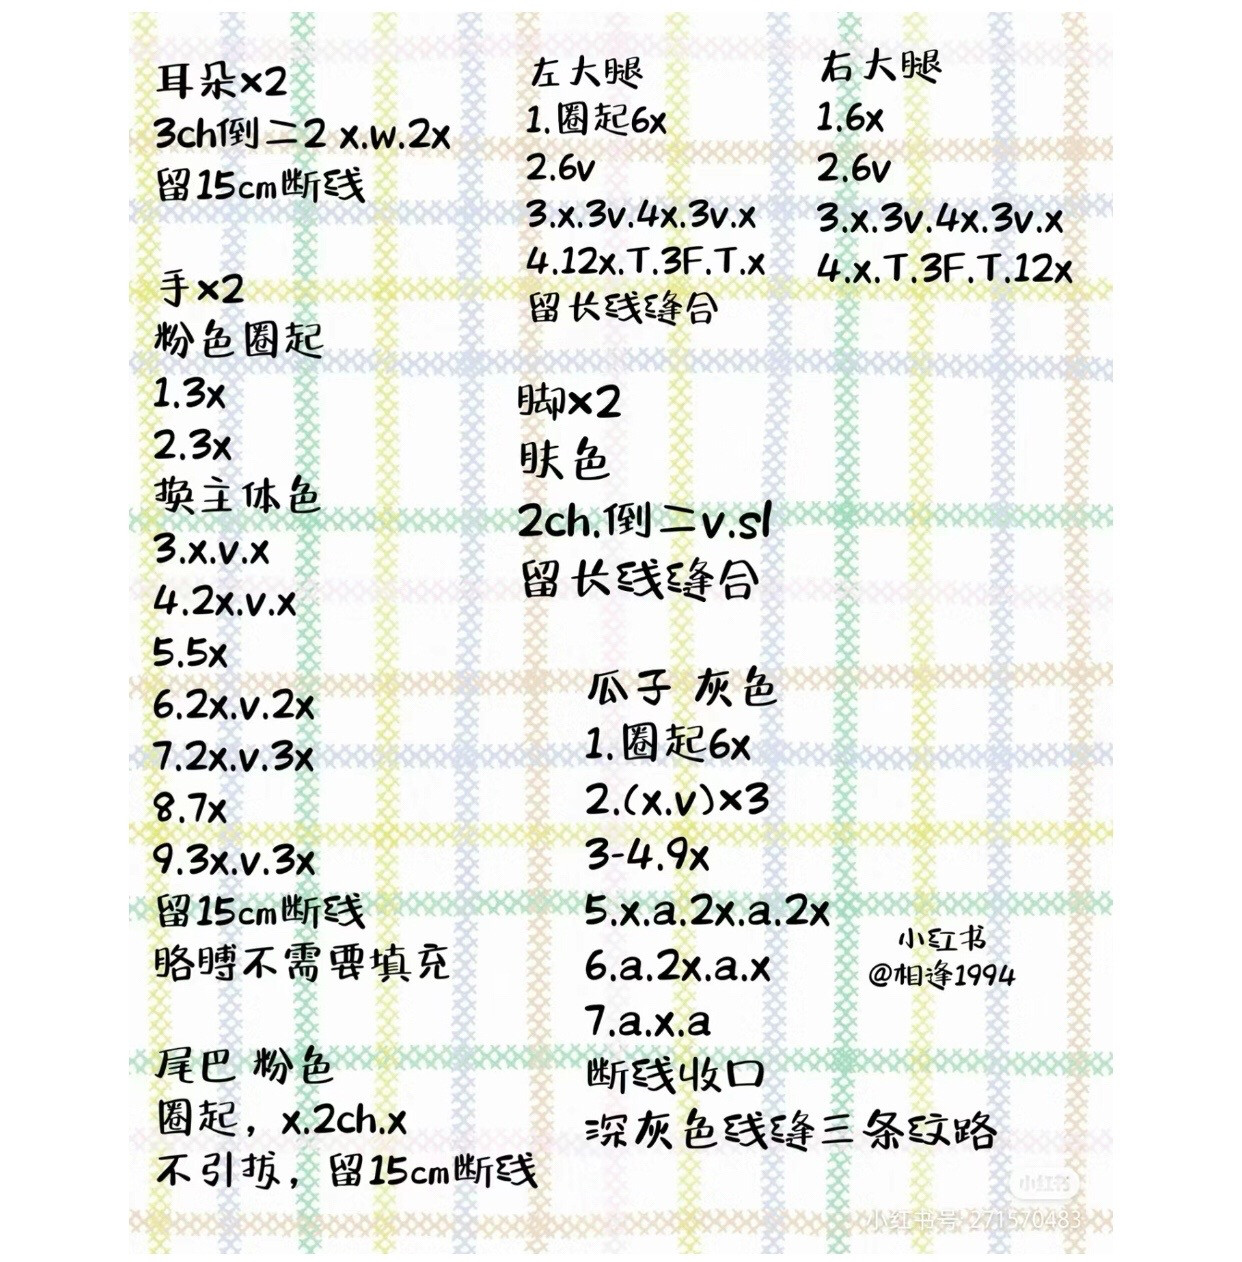 耳朵×2
3ch倒二2 x.w.2x
留15cm断线
手×2
粉色圈起
1.3x
2.3x
换主体色
3.x.v.x
4.2x.v.x
5.5x
6.2x.v.2x
7.2x.v.3x
8.7x
9.3x.v.3x
留15cm断线
胳膊不需要填充
尾巴 粉色
圈起，x.2ch.x
不引拔，留15cm断线
左大腿
1.圈起6x
2.6v
3.x.3v.4x.3v.x
4.12x.T.3F.T.x
留长线缝合
右大腿
1.6x
2.6v
3.x.3v.4x.3v.x
4.x.T.3F.T.12x
脚×2
肤色
2ch.倒二v.sl
留长线缝合
瓜子 灰色
1.圈起6x
2.(x.v)×3
3-4.9x
5.x.a.2x.a.2x
6.a.2x.a.x
7.a.x.a
断线收口
深灰色线缝三条纹路
小红书
@相逢1994
小红书
小红书号: 271570483